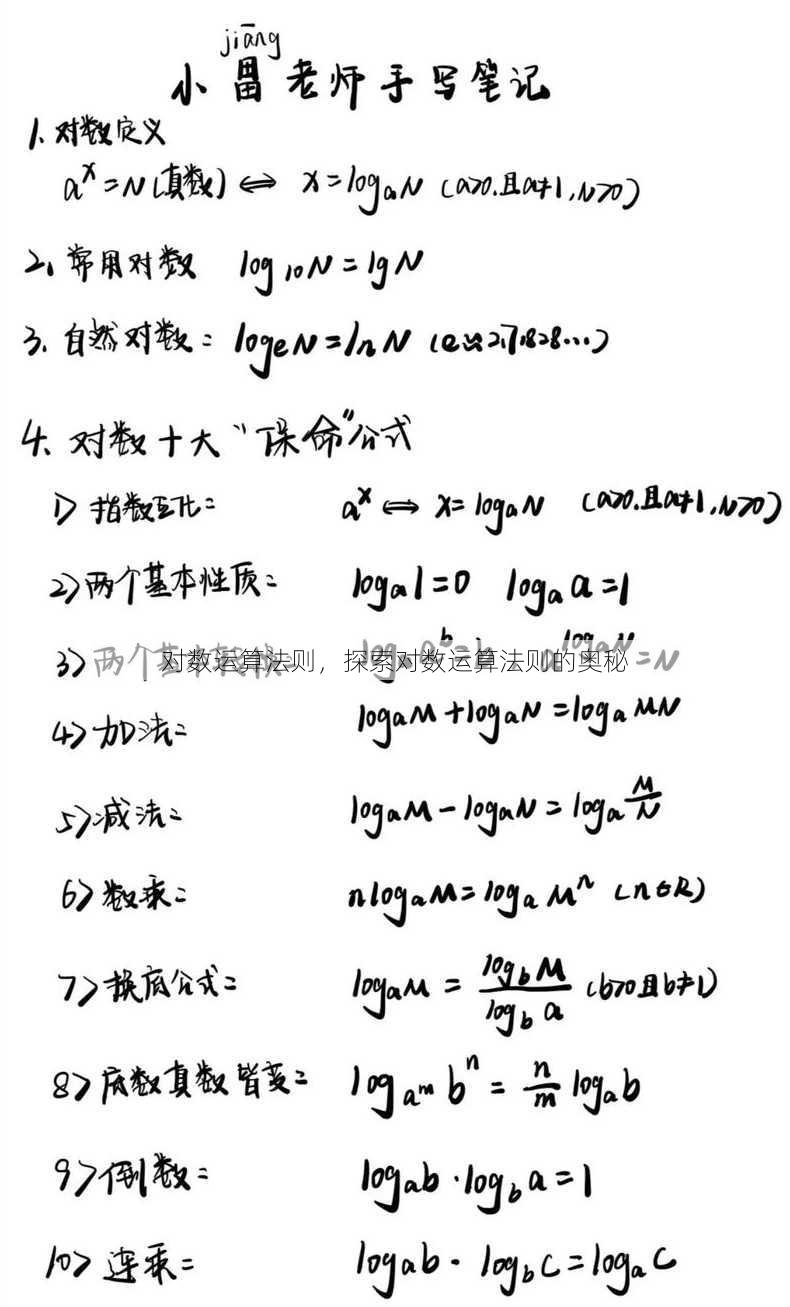 jiāng
小畺老师手写笔记
1. 对数定义
aˣ=N(真数) ⇔ x=logₐN (a>0.且a≠1,N>0)
2. 常用对数 log₁₀N=lgN
3. 自然对数: logₑN=lnN (e≈2.71828...)
4. 对数十大“保命”公式
1) 指数互化: aˣ ⇔ x=logₐN (a>0.且a≠1,N>0)
2) 两个基本性质: logₐ1=0 logₐa=1
3) 两个基本 =N
对数运算法则，探索对数运算法则的奥秘
4) 加法: logₐM+logₐN=logₐMN
5) 减法: logₐM-logₐN=logₐ M/N
6) 数乘: nlogₐM=logₐMⁿ (n∈R)
7) 换底公式: logₐM = log_b M / log_b a (b>0且b≠1)
8) 底数真数皆变: log_{a^m} bⁿ = n/m logₐb
9) 倒数: logₐb·log_b a=1
10) 连乘: logₐb·log_b c=logₐc